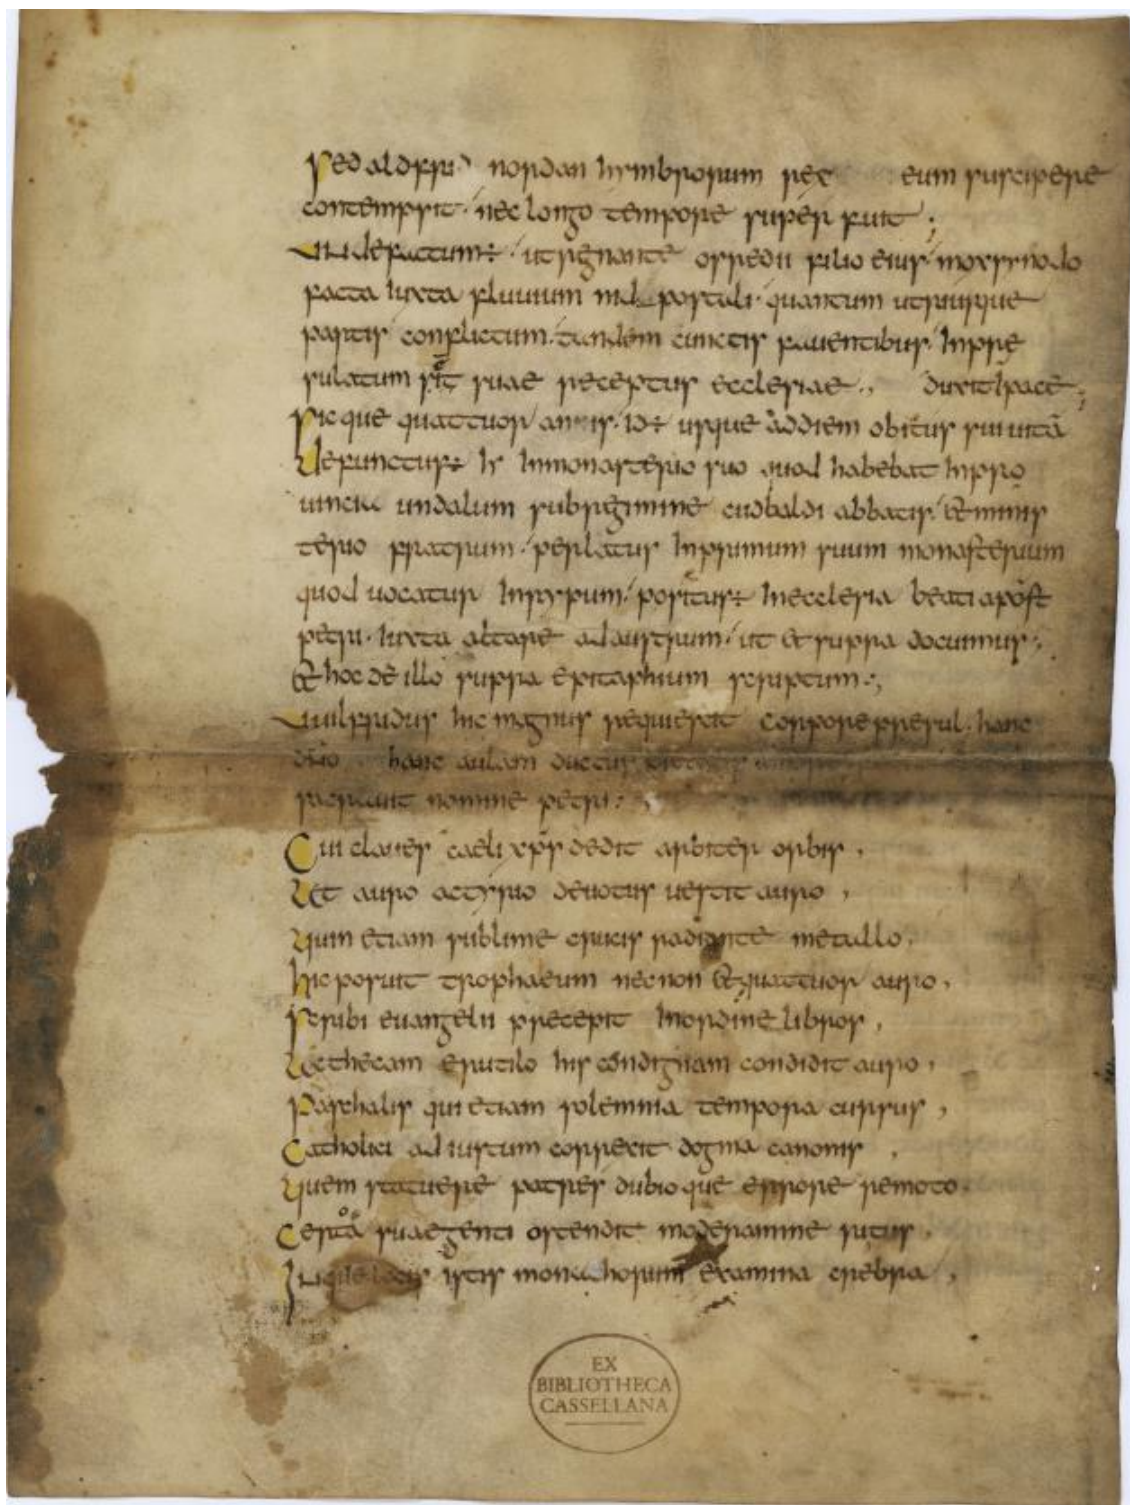 sed aldfrid nordan hymbrorum rex eum suscipere
contempsit nec longo tempore superfuit ;
unde factum ÷ ut regnante osredu filio eius mox synodo
facta iuxta fluuium nid post ali quantum utriusque
partis conflictum tandem cunctis fauentibus in prae
sulatum sit suae receptus ecclesiae ., duxit in pace ;
sicque quattuor annis id ÷ usque ad diem obitus sui uitā
Defunctus ÷ hr in monasterio suo quod habebat in pro
uincia undalum sub regimine cudbaldi abbatis et minis
terio fratrum perlatus in primum suum monasterium
quod uocatur in rypum positus ÷ in ecclesia beati apost
petri iuxta altare ad austrum ut et supra docuimus ;
et hoc de illo supra epitaphium scriptum .,
uuilfridus hic magnus requiescit corpore presul hanc
dn̄o hanc aulam ductus pietatis
sacrauit nomine petri :
Cui claues caeli xp̄s dedit arbiter orbis ,
Et auro ac tyrio deuotus uestit auro ,
Quin etiam sublime crucis radiante metallo ,
hic posuit trophaeum necnon et quattuor auro ,
scribi euangelii precepit in ordine libros ,
Ac thecam e rutilo his condignam condidit auro ,
Paschalis qui etiam solemnia tempora cursus ,
Catholici ad iustum correxit dogma canonis ,
Quem statuere patres dubioque errore remoto .
Certa suae genti ostendit moderamine ritus .
Inque locis istis monachorum examina crebra ,
EX
BIBLIOTHECA
CASSELLANA